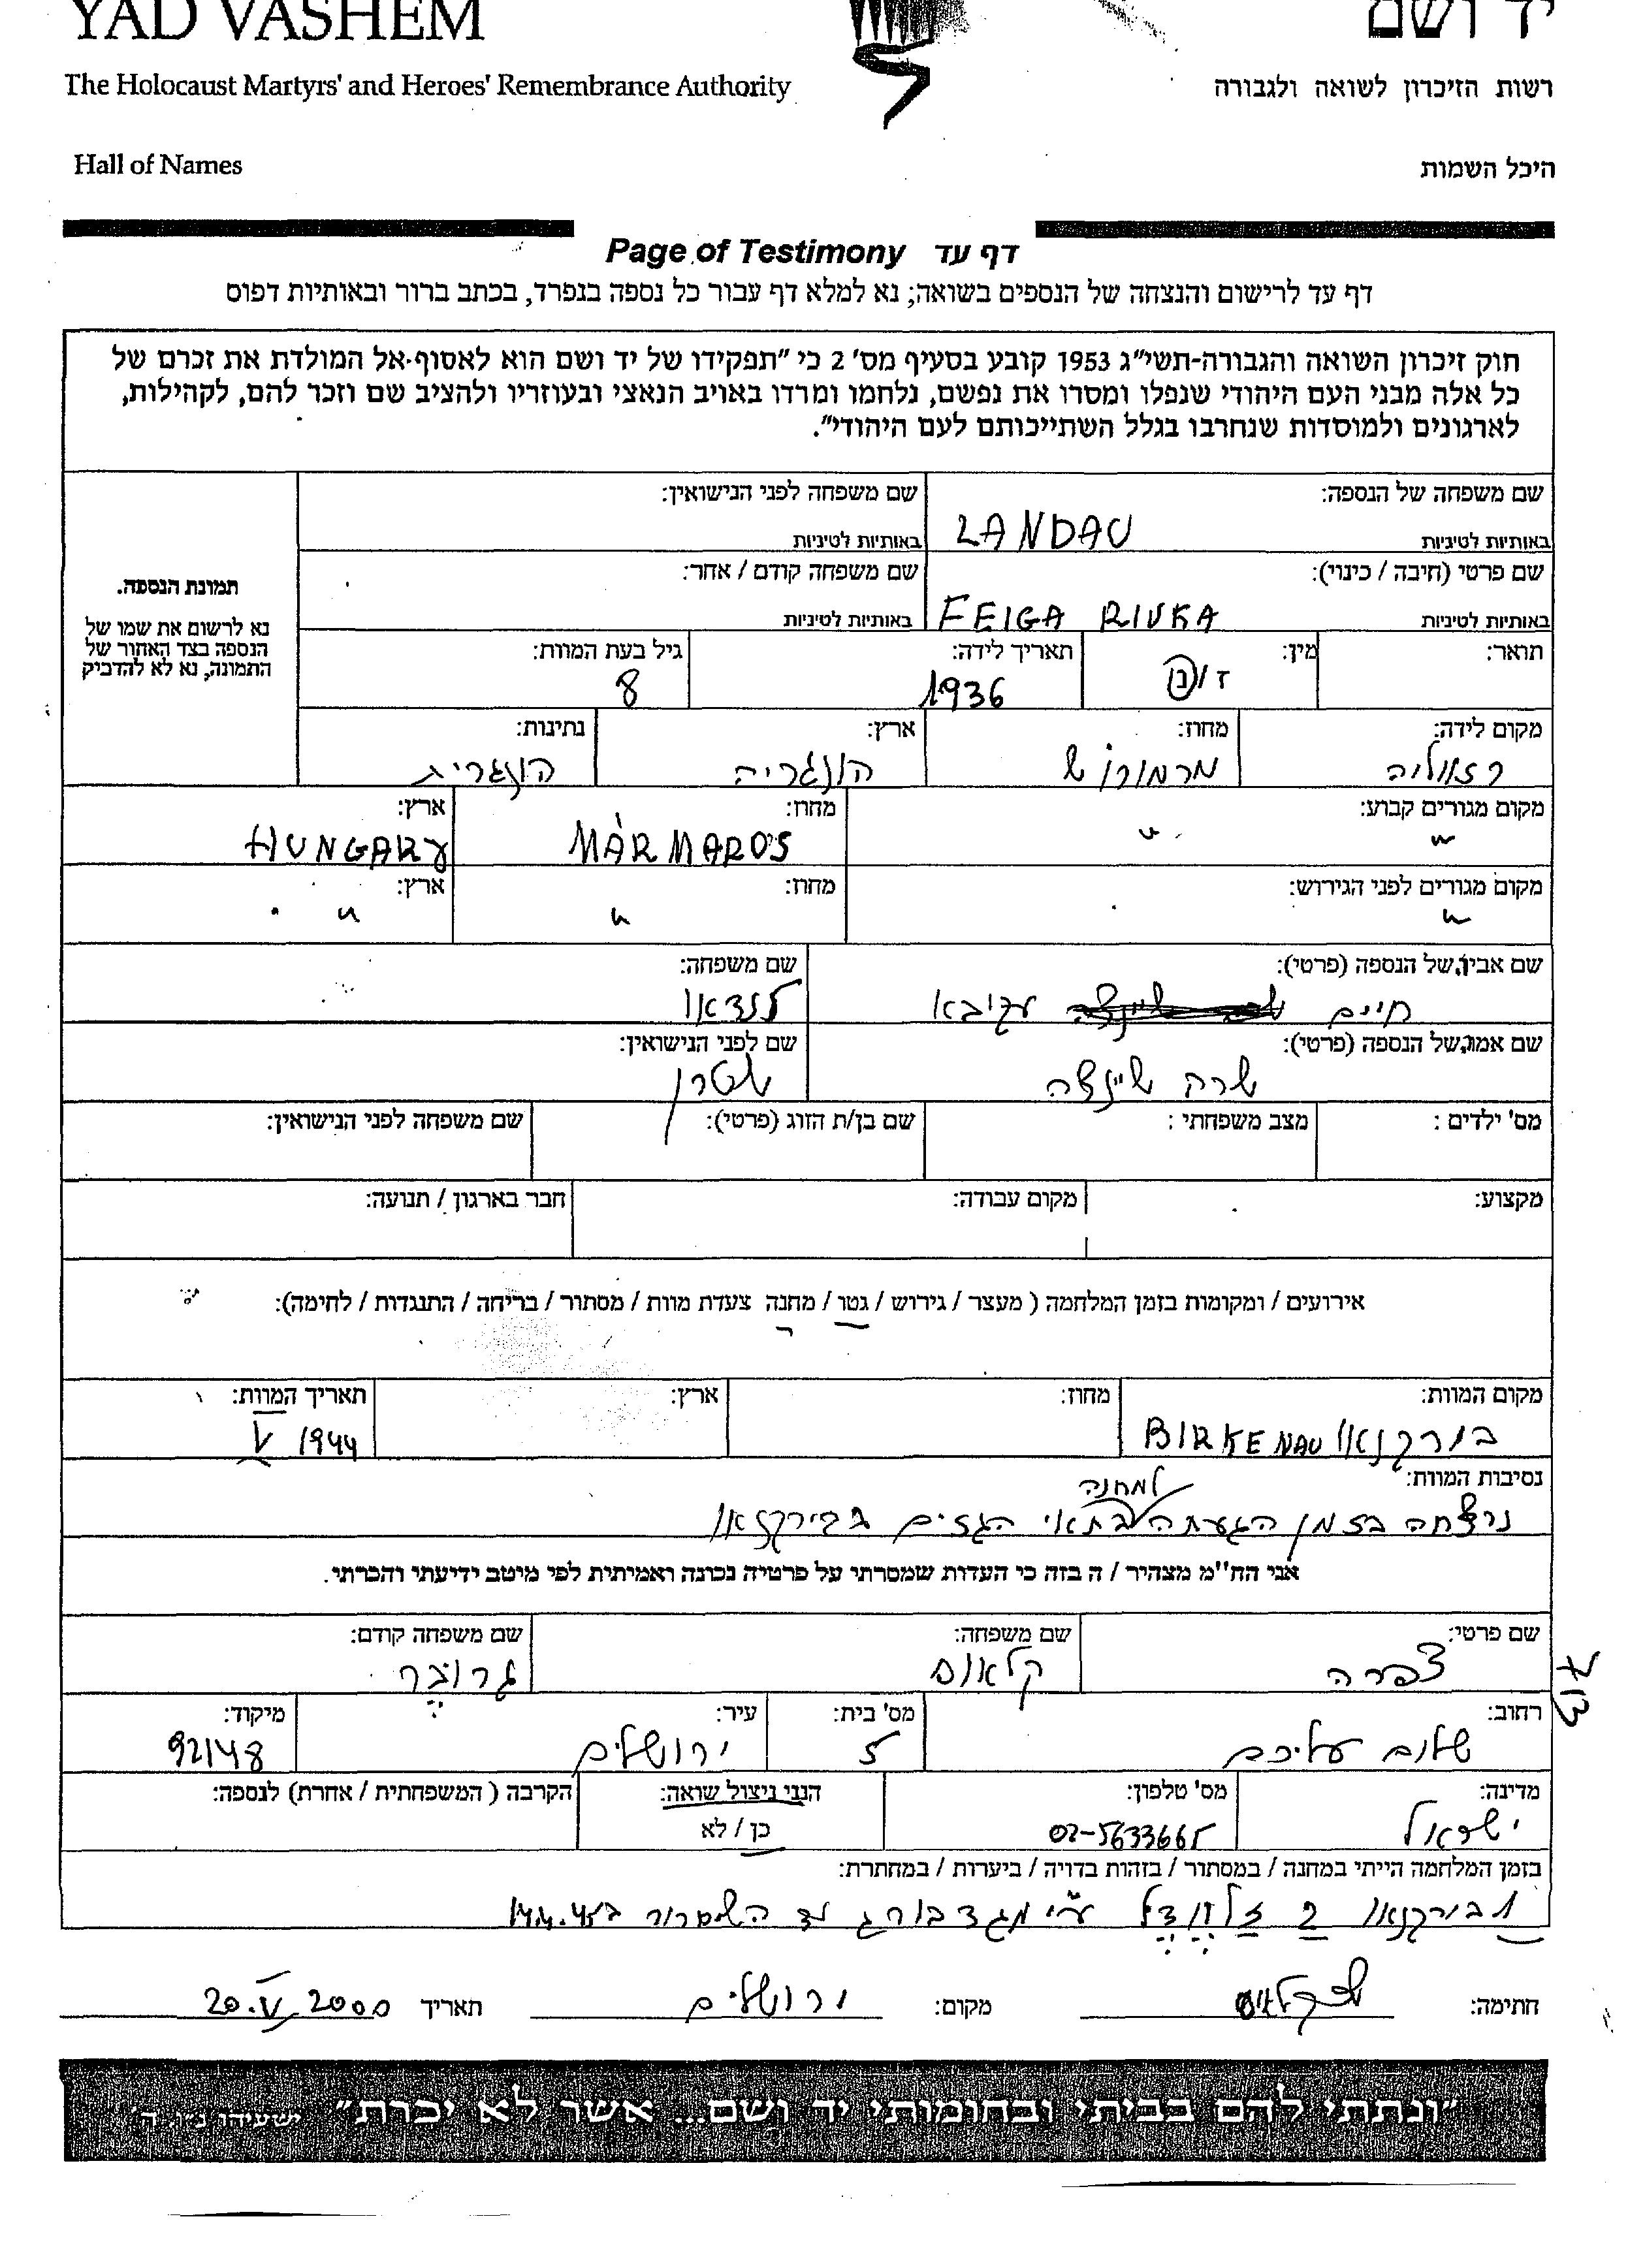 YAD VASHEM יד ושם
The Holocaust Martyrs' and Heroes' Remembrance Authority רשות הזיכרון לשואה ולגבורה
Hall of Names היכל השמות
Page of Testimony דף עד
דף עד לרישום והנצחה של הנספים בשואה; נא למלא דף עבור כל נספה בנפרד, בכתב ברור ובאותיות דפוס
חוק זיכרון השואה והגבורה-תשי"ג 1953 קובע בסעיף מס' 2 כי "תפקידו של יד ושם הוא לאסוף אל המולדת את זכרם של
כל אלה מבני העם היהודי שנפלו ומסרו את נפשם, נלחמו ומרדו באויב הנאצי ובעוזריו ולהציב שם וזכר להם, לקהילות,
לארגונים ולמוסדות שנחרבו בגלל השתייכותם לעם היהודי".
שם משפחה של הנספה: שם משפחה לפני הנישואין:
באותיות לטיניות LANDAU באותיות לטיניות
שם פרטי (חיבה / כינוי): שם משפחה קודם / אחר:
באותיות לטיניות FEIGA RIVKA באותיות לטיניות
תמונת הנספה.
נא לרשום את שמו של
הנספה בצד האחור של
התמונה, נא לא להדביק
תואר: מין: תאריך לידה: גיל בעת המוות:
ז / נ 1936 8
מקום לידה: מחוז: ארץ: נתינות:
מרמורוש הונגריה הונגרית
מקום מגורים קבוע: מחוז: ארץ:
" " MÁRMAROS HUNGARY
מקום מגורים לפני הגירוש: מחוז: ארץ:
" " "
שם אביו של הנספה (פרטי): שם משפחה:
חיים עקיבא לנדאו
שם אמו של הנספה (פרטי): שם לפני הנישואין:
שרה שיינצה שטרן
מס' ילדים : מצב משפחתי : שם בן/ת הזוג (פרטי): שם משפחה לפני הנישואין:
מקצוע: מקום עבודה: חבר בארגון / תנועה:
אירועים / ומקומות בזמן המלחמה ( מעצר / גירוש / גטו / מחנה צעדת מוות / מסתור / בריחה / התנגדות / לחימה):
מקום המוות: מחוז: ארץ: תאריך המוות:
בורקנאו BIRKENAU 1944 V
נסיבות המוות:
למחנה
נרצחה בזמן הגעתה בתאי הגזים בבירקנאו
אני הח"מ מצהיר / ה בזה כי העדות שמסרתי על פרטיה נכונה ואמיתית לפי מיטב ידיעתי והכרתי.
שם פרטי: שם משפחה: שם משפחה קודם:
צפרה קלאוס גרובר
רחוב: מס' בית: עיר: מיקוד:
שלום עליכם 5 ירושלים 92148
מדינה: מס' טלפון: הנני ניצול שואה: הקרבה ( המשפחתית / אחרת) לנספה:
ישראל 02-5633665 כן / לא
בזמן המלחמה הייתי במחנה / במסתור / בזהות בדויה / ביערות / במחתרת:
1 בורקנאו 2 זלצוודל ע"י מגדבורג עד השחרור ב 14.4.45
חתימה: מקום: ירושלים תאריך 20.V.2000
"ונתתי להם בביתי ובחומותי יד ושם... אשר לא יכרת" ישעיהו נ"ו, ה'